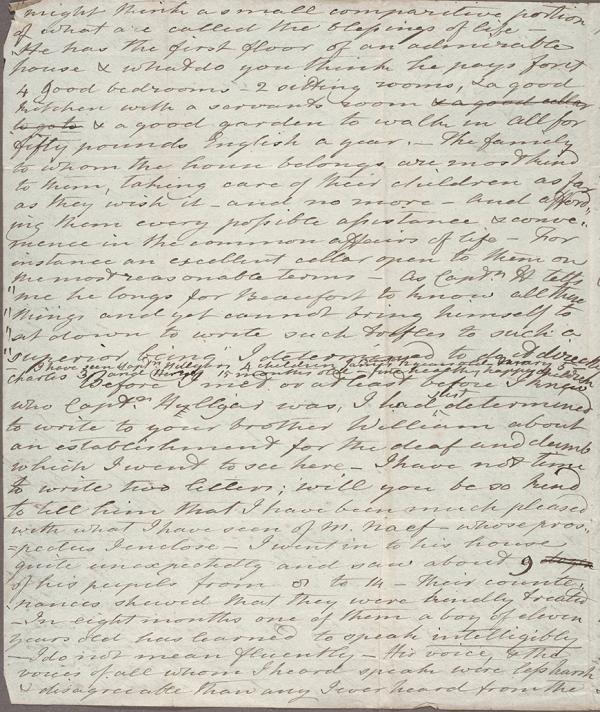 might think a small comparitive portion
of what are called the blessings of life –
He has the first floor of an admirable
house & what do you think he pays for it
4 good bedrooms – 2 sitting rooms, & a good
kitchen with a servants room & a good cellar
to goto & a good garden to walk in all for
fifty pounds English a year. – The family
to whom the house belongs are most kind
to them, taking care of their children as far
as they wish it – and no more – and afford-
ing them every possible assistance & conve-
nience in the common affairs of life – For
instance an excellent cellar open to them on
the most reasonable terms – As Captn H tells
"me he longs for Beaufort to know all these
"things and yet cannot bring himself to
"sit down to write such trifles to such a
"superior being" I determined to do it directly
I have seen Captn Hillyar's 4 children
Charles 15 months old – fine healthy happy children
Before I met or at least before I knew
who Captn Hillyar was, I had just determined
to write to your brother William about
an establishment for the deaf and dumb
which I went to see here – I have not time
to write two letters; will you be so kind
to tell him that I have been much pleased
with what I have seen of M. Naef – whose pros-
=pectus I enclose – I went in to his house
quite unexpectedly and saw about 9
of his pupils from 8 to 14 – their counte-
nances shewed that they were kindly treated
– In eight months one of them a boy of eleven
years old has learned to speak intelligibly
– I do not mean fluently – His voice, & the
voices of all whom I heard speak were less harsh
& disagreeable than any I ever heard from the